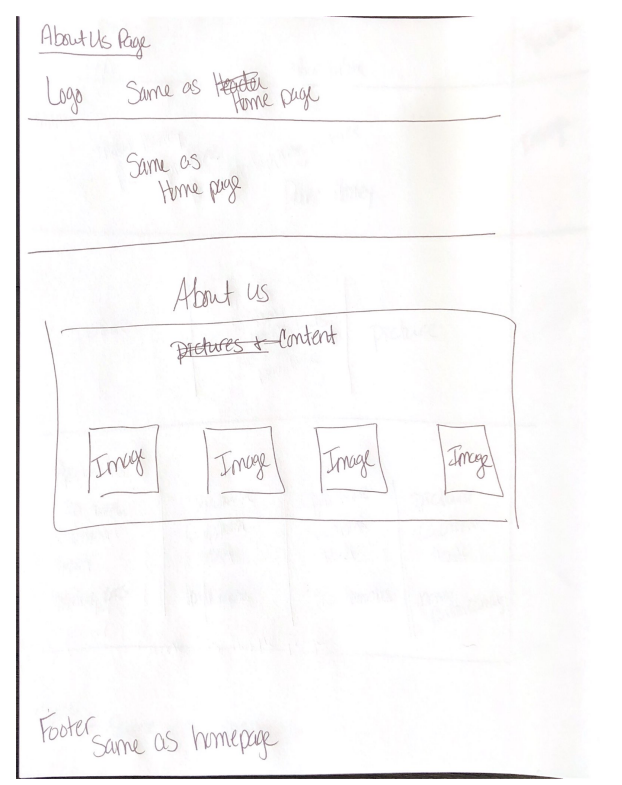 About Us Page
Logo Same as Header
Home page
Same as
Home page
About us
Pictures + Content
Image Image Image Image
Footer
Same as homepage